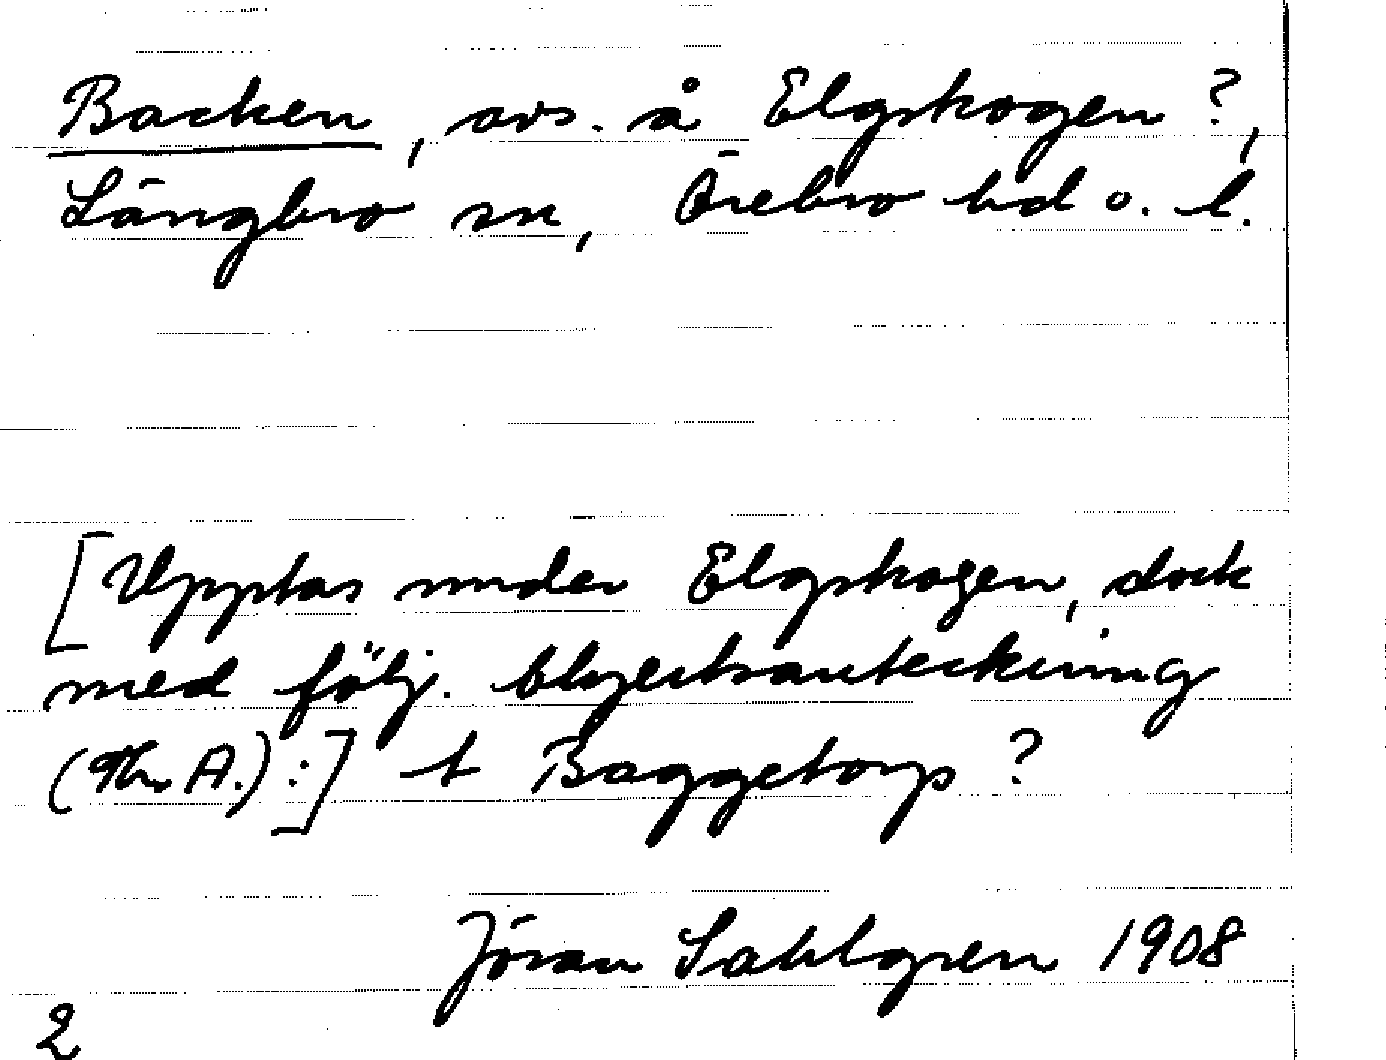 Backen, avs. å Elgskogen?,
Längbro sn, Örebro hd o. l.
[Upptas under Elgskogen, dock
med följ. blyertsanteckning
(Th. A.):] t Baggetorp?
Jöran Sahlgren 1908
2